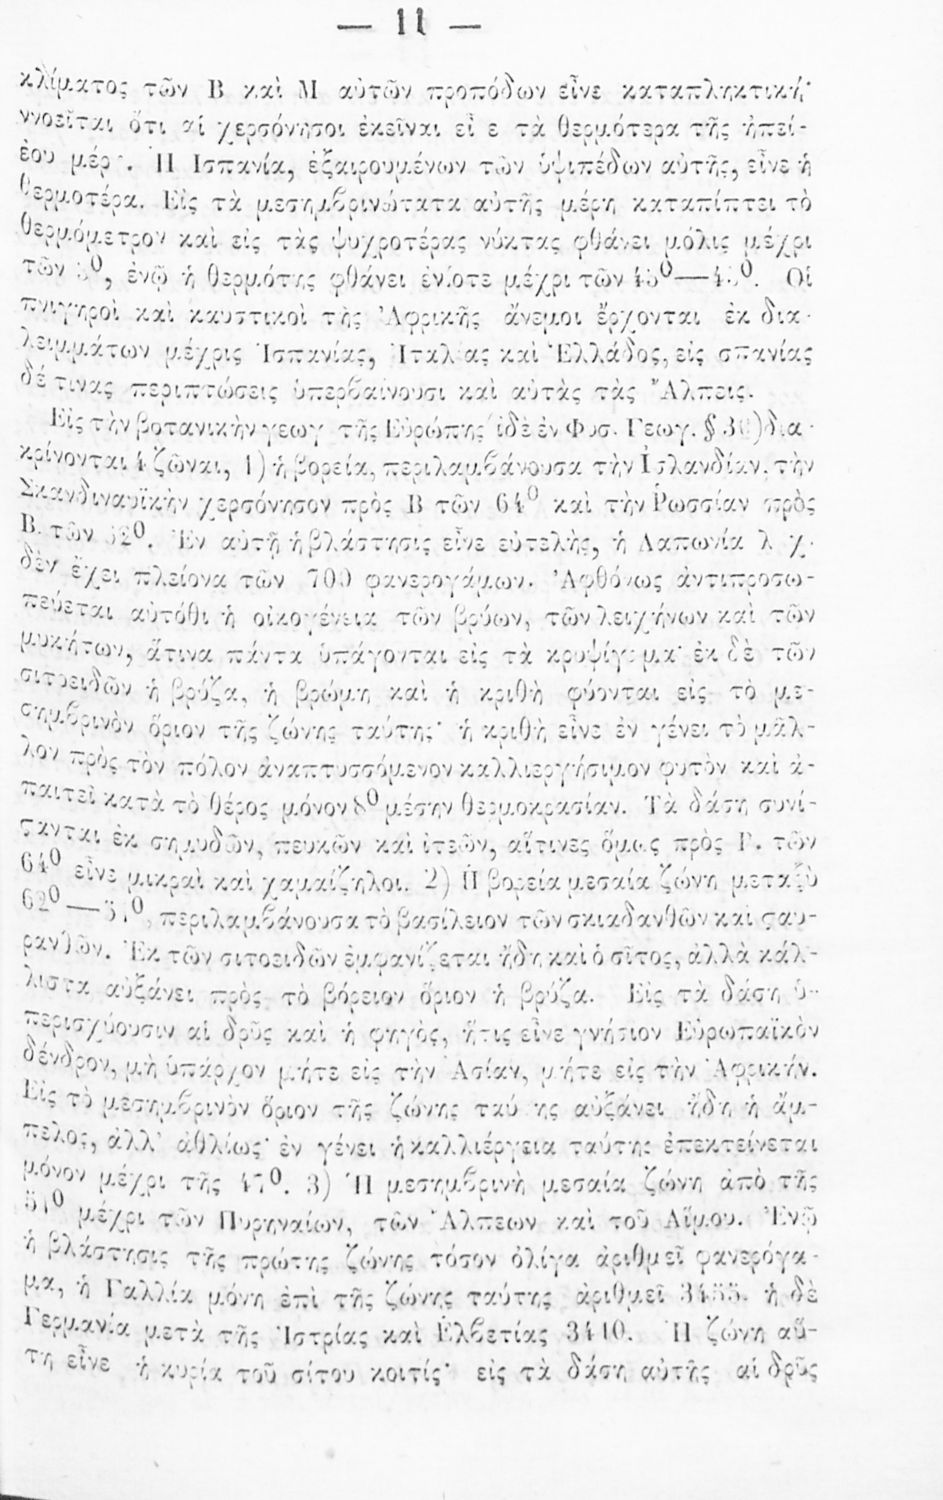 — 11 —
κλίματος τῶν Β καὶ Μ αὐτῶν προπόδων εἶνε καταπληκτική·
ννοεῖται ὅτι αἱ χερσόνησοι ἐκεῖναι εἶ ε τὰ θερμότερα τῆς ἠπεί-
ρου μέρ . Ἡ Ισπανία, ἐξαιρουμένων τῶν ὑψιπέδων αὐτῆς, εἶνε ἡ
θερμοτέρα. Εἰς τὰ μεσημβρινώτατα αὐτῆς μέρη καταπίπτει τὸ
θερμόμετρον καὶ εἰς τὰς ψυχροτέρας νύκτας φθάνει μόλις μέχρι
τῶν ἐνῷ ἡ θερμότης φθάνει ἐνίοτε μέχρι τῶν Οἱ
πνιγηροὶ καὶ καυστικοὶ τῆς Ἀφρικῆς ἄνεμοι ἔρχονται ἐκ δια-
λειμμάτων μέχρις Ἱσπανίας, Ἰταλίας καὶ Ἑλλάδος, εἰς σπανίας
δέ τινας περιπτώσεις ὑπερβαίνουσι καὶ αὐτὰς τὰς Ἄλπεις.
Εἰς τὴν βοτανικὴν γεωγ τῆς Εὐρώπης (ἰδὲ ἐν Φυσ. Γεωγ. § 30) δια-
κρίνονται 4 ζῶναι, 1) ἡ βορεία, περιλαμβάνουσα τὴν Ἰσλανδίαν, τὴν
Σκανδιναυϊκὴν χερσόνησον πρὸς Β τῶν 64⁰ καὶ τὴν Ῥωσσίαν πρὸς
Β. τῶν 62⁰. Ἐν αὐτῇ ἡ βλάστησις εἶνε εὐτελής, ἡ Λαπωνία λ χ.
δὲν ἔχει πλείονα τῶν 700 φανερογάμων. Ἀφθόνως ἀντιπροσω-
πεύεται αὐτόθι ἡ οἰκογένεια τῶν βρύων, τῶν λειχήνων καὶ τῶν
μυκήτων, ἅτινα πάντα ὑπάγονται εἰς τὰ κρυψίγαμα· ἐκ δὲ τῶν
σιτοειδῶν ἡ βρύζα, ἡ βρώμη καὶ ἡ κριθὴ φύονται εἰς τὸ με-
σημβρινὸν ὅριον τῆς ζώνης ταύτης· ἡ κριθὴ εἶνε ἐν γένει τὸ μᾶλ-
λον πρὸς τὸν πόλον ἀναπτυσσόμενον καλλιεργήσιμον φυτὸν καὶ ἀ-
παιτεῖ κατὰ τὸ θέρος μόνον 8⁰ μέσην θερμοκρασίαν. Τὰ δάση συνί-
στανται ἐκ σημυδῶν, πευκῶν καὶ ἰτεῶν, αἵτινες ὅμως πρὸς Β. τῶν
64⁰ εἶνε μικραὶ καὶ χαμαίζηλοι. 2) Ἡ βορεία μεσαία ζώνη μεταξὺ
62⁰ — περιλαμβάνουσα τὸ βασίλειον τῶν σκιαδανθῶν καὶ σταυ-
ρανθῶν. Ἐκ τῶν σιτοειδῶν ἐμφανίζεται ἤδη καὶ ὁ σῖτος, ἀλλὰ κάλ-
λιστα αὐξάνει πρὸς τὸ βόρειον ὅριον ἡ βρύζα. Εἰς τὰ δάση ὑ-
περισχύουσιν αἱ δρῦς καὶ ἡ φηγὸς, ἥτις εἶνε γνήσιον Εὐρωπαϊκὸν
δένδρον, μὴ ὑπάρχον μήτε εἰς τὴν Ἀσίαν, μήτε εἰς τὴν Ἀφρικήν.
Εἰς τὸ μεσημβρινὸν ὅριον τῆς ζώνης ταύ ης αὐξάνει ἤδη ἡ ἄμ-
πελος, ἀλλ' ἀθλίως· ἐν γένει ἡ καλλιέργεια ταύτης ἐπεκτείνεται
μόνον μέχρι τῆς 47⁰. 3) Ἡ μεσημβρινὴ μεσαία ζώνη ἀπὸ τῆς
51⁰ μέχρι τῶν Πυρηναίων, τῶν Ἄλπεων καὶ τοῦ Αἵμου. Ἐνῷ
ἡ βλάστησις τῆς πρώτης ζώνης τόσον ὀλίγα ἀριθμεῖ φανερόγα-
μα, ἡ Γαλλία μόνη ἐπὶ τῆς ζώνης ταύτης ἀριθμεῖ 3455. ἡ δὲ
Γερμανία μετὰ τῆς Ἰστρίας καὶ Ἑλβετίας 3410. Ἡ ζώνη αὕ-
τη εἶνε ἡ κυρία τοῦ σίτου κοιτίς· εἰς τὰ δάση αὐτῆς αἱ δρῦς